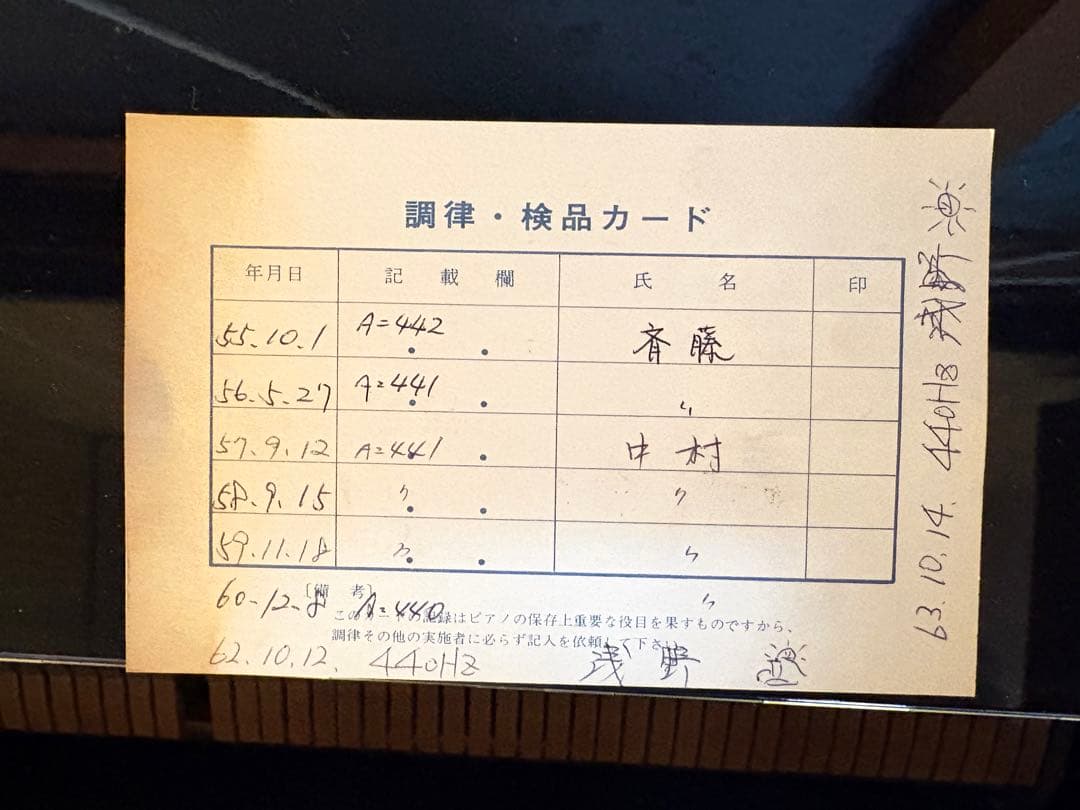 調律・検品カード
年月日 記載欄 氏名 印
55.10.1 A=442 斉藤
56.5.27 A=441 〃
57.9.12 A=441 中村
58.9.15 〃 〃
59.11.18 〃 〃
60-12-8 A=440 〃
〔備考〕
このカードの記録はピアノの保存上重要な役目を果すものですから、
調律その他の実施者に必らず記入を依頼して下さい
62.10.12. 440Hz 浅野
63.10.14. 440Hz 浅野